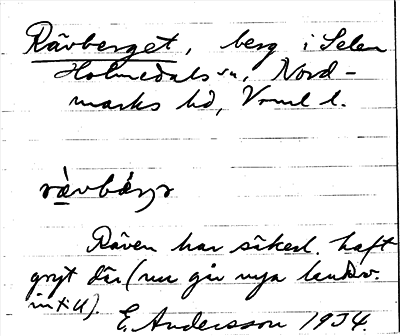 Rävberget, berg i Selen
Holmedals sn, Nord-
marks hd, Vrml l.
rävbärjr
Räven har säkerl. haft
gryt där (nu går nya landsv.
in t. U).
E. Andersson 1934.